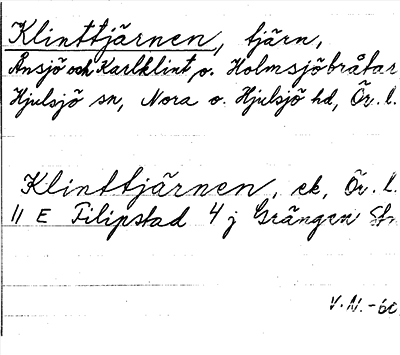 Klinttjärnen, tjärn,
Ånsjö och Karlklint, o. Holmsjöbråtar
Hjulsjö sn, Nora o. Hjulsjö hd, Ör. l.
Klinttjärnen, ek, Ör. l.
11 E Filipstad 4 j Grängen
V.N. -60